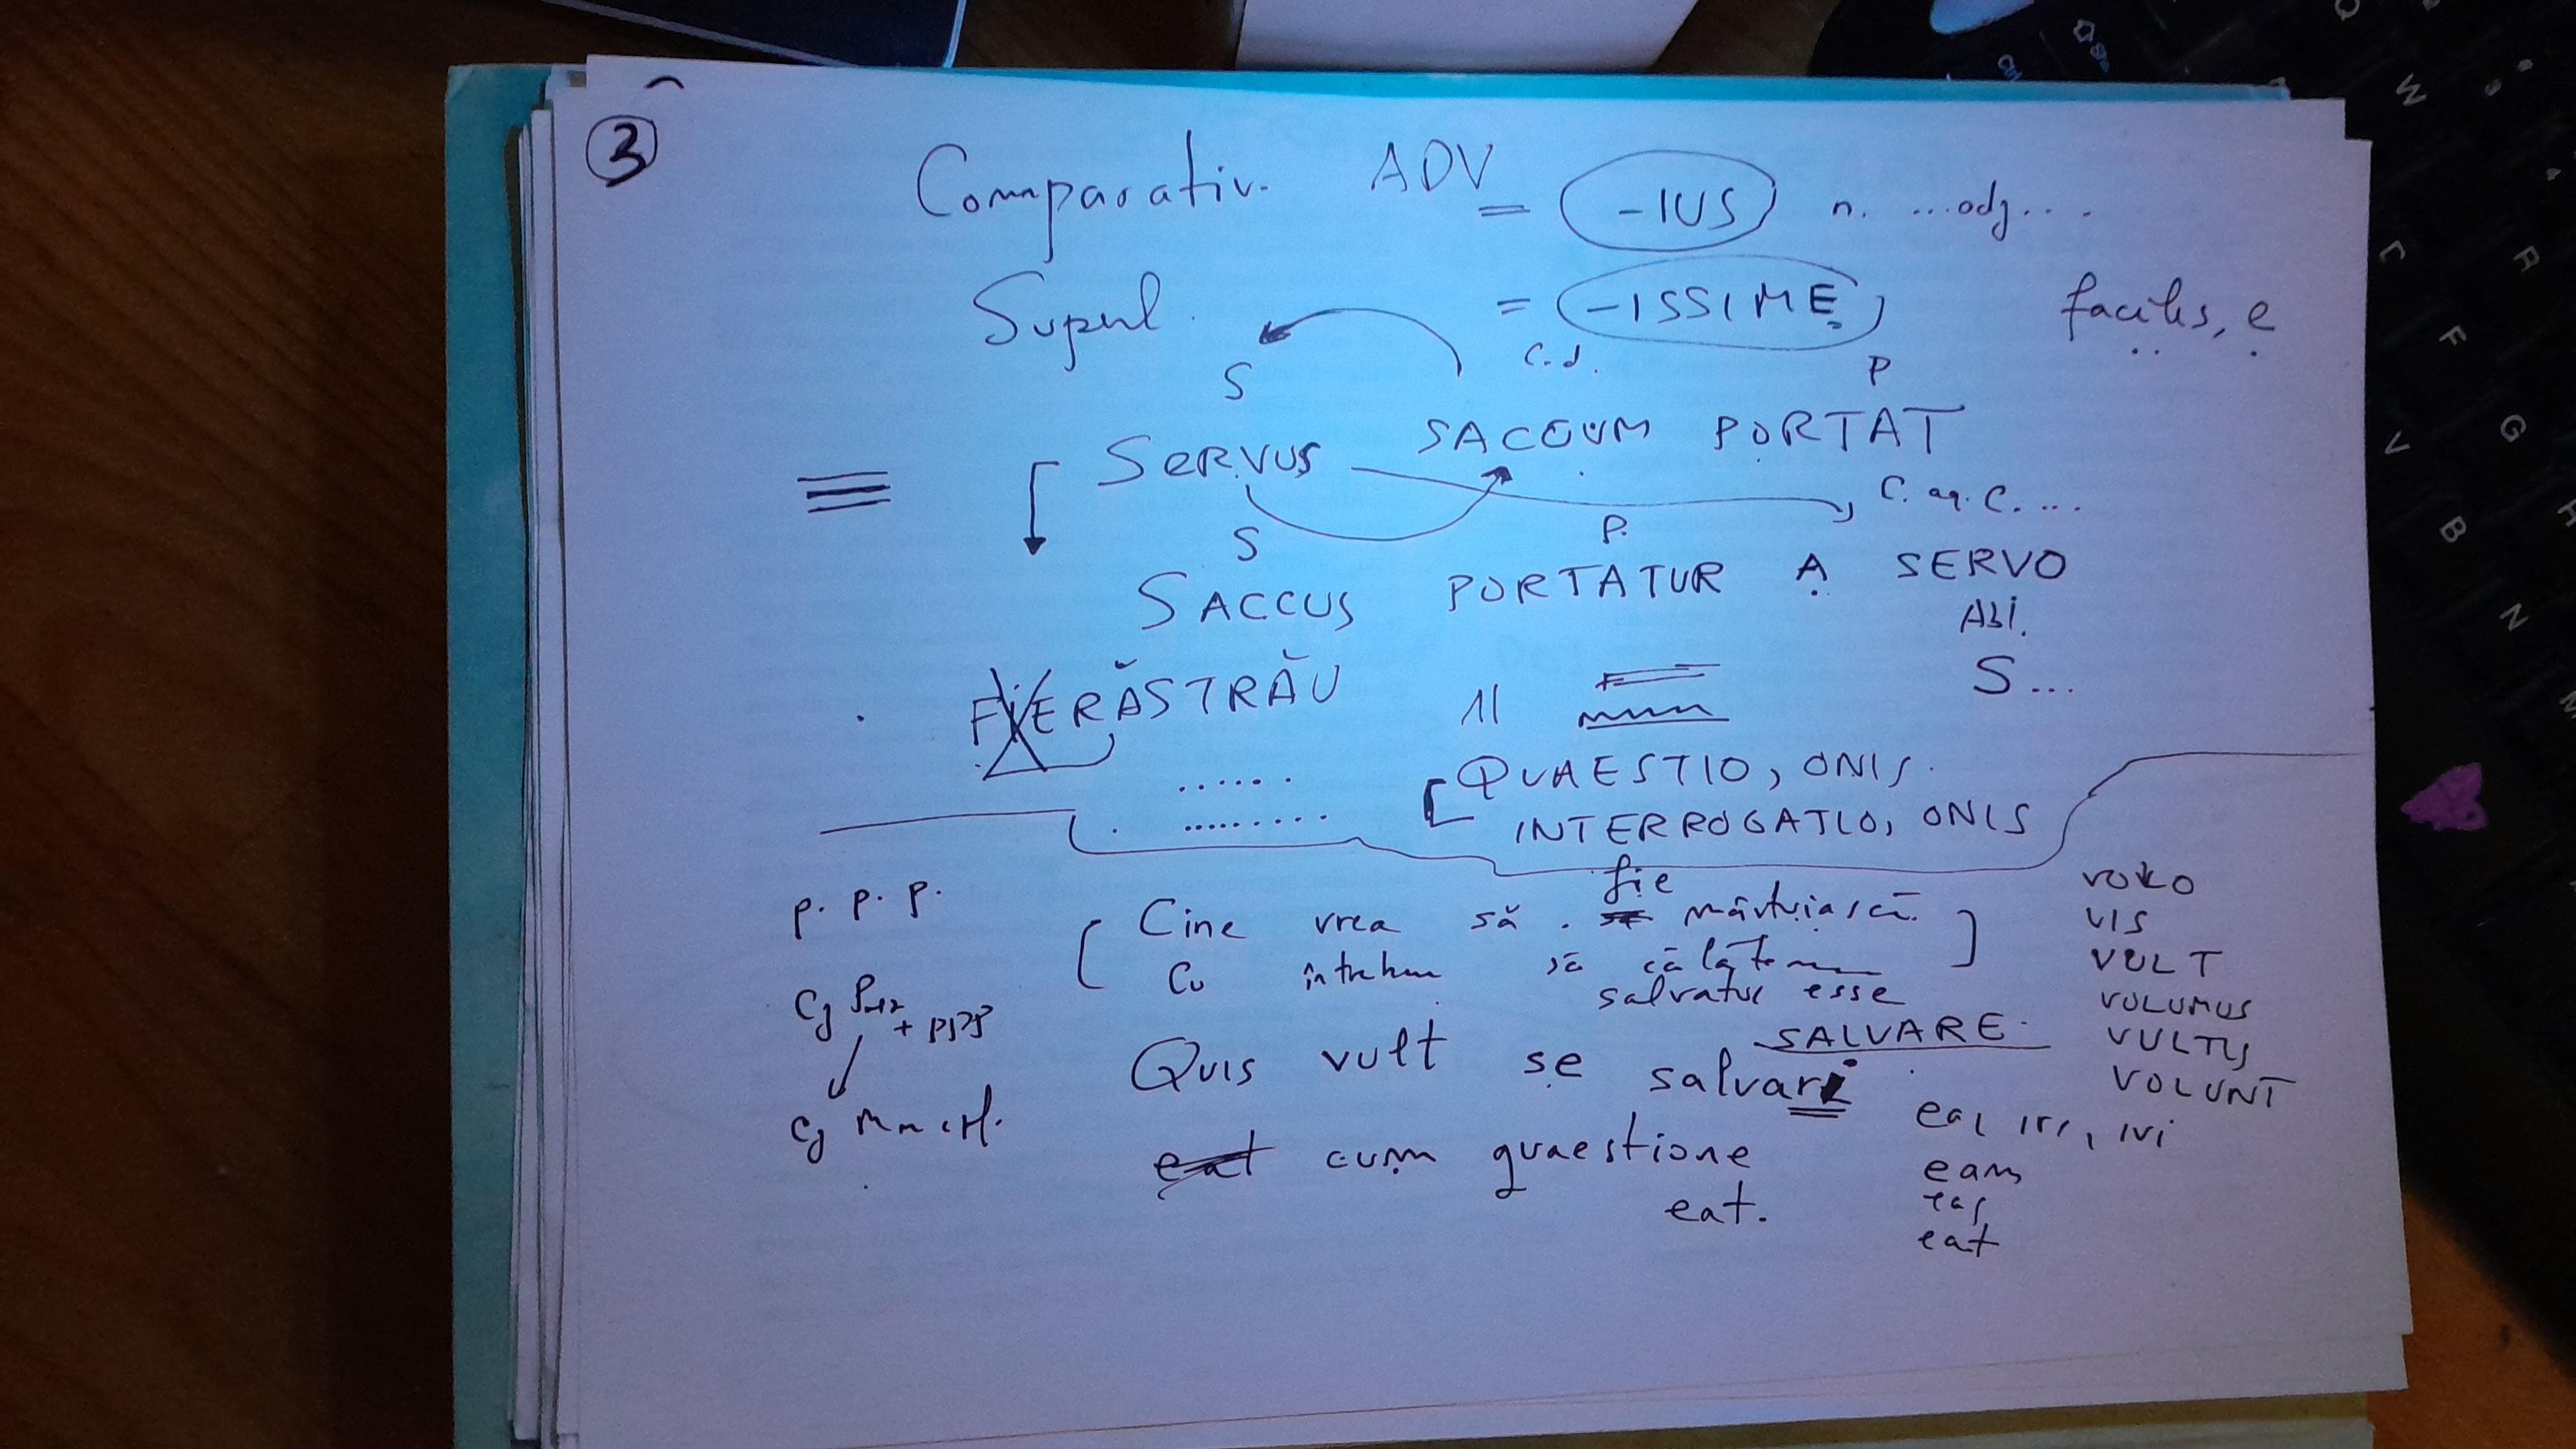 3
Comparativ. ADV = -IUS n. ...adj...
Superl. = -ISSIME, facilis, e
S C.d. P
SERVUS SACCUM PORTAT
C. ag. C....
S P.
SACCUS PORTATUR A SERVO
Abl.
S...
FIERĂSTRĂU
QUAESTIO, ONIS.
INTERROGATIO, ONIS
p. p. p.
fie
Cine vrea să se mântuiască
Cu să
Cj + ppp
Cj
salvatus esse
SALVARE
Quis vult se salvari
eat cum quaestione
eat.
VOLO
VIS
VULT
VOLUMUS
VULTIS
VOLUNT
ivi
eam
eas
eat